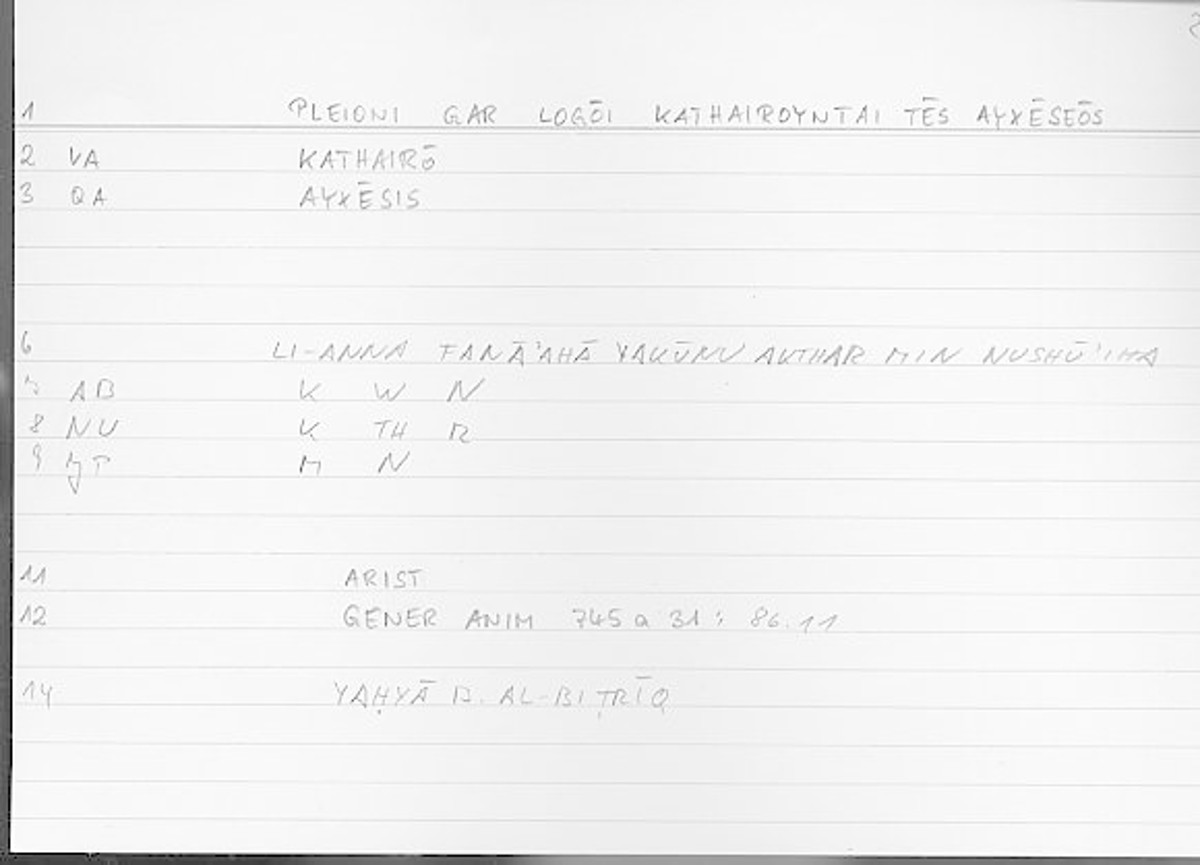 1 PLEIONI GAR LOGŌI KATHAIROYNTAI TĒS AYXĒSEŌS
2 VA KATHAIRŌ
3 QA AYXĒSIS
6 LI-ANNA FANĀ'AHĀ YAKŪNU AKTHAR MIN NUSHŪ'IHA
7 AB K W N
8 NU K TH R
9 M N
11 ARIST
12 GENER ANIM 745 a 31 : 86.11
14 YAḤYĀ B. AL-BIṬRĪQ